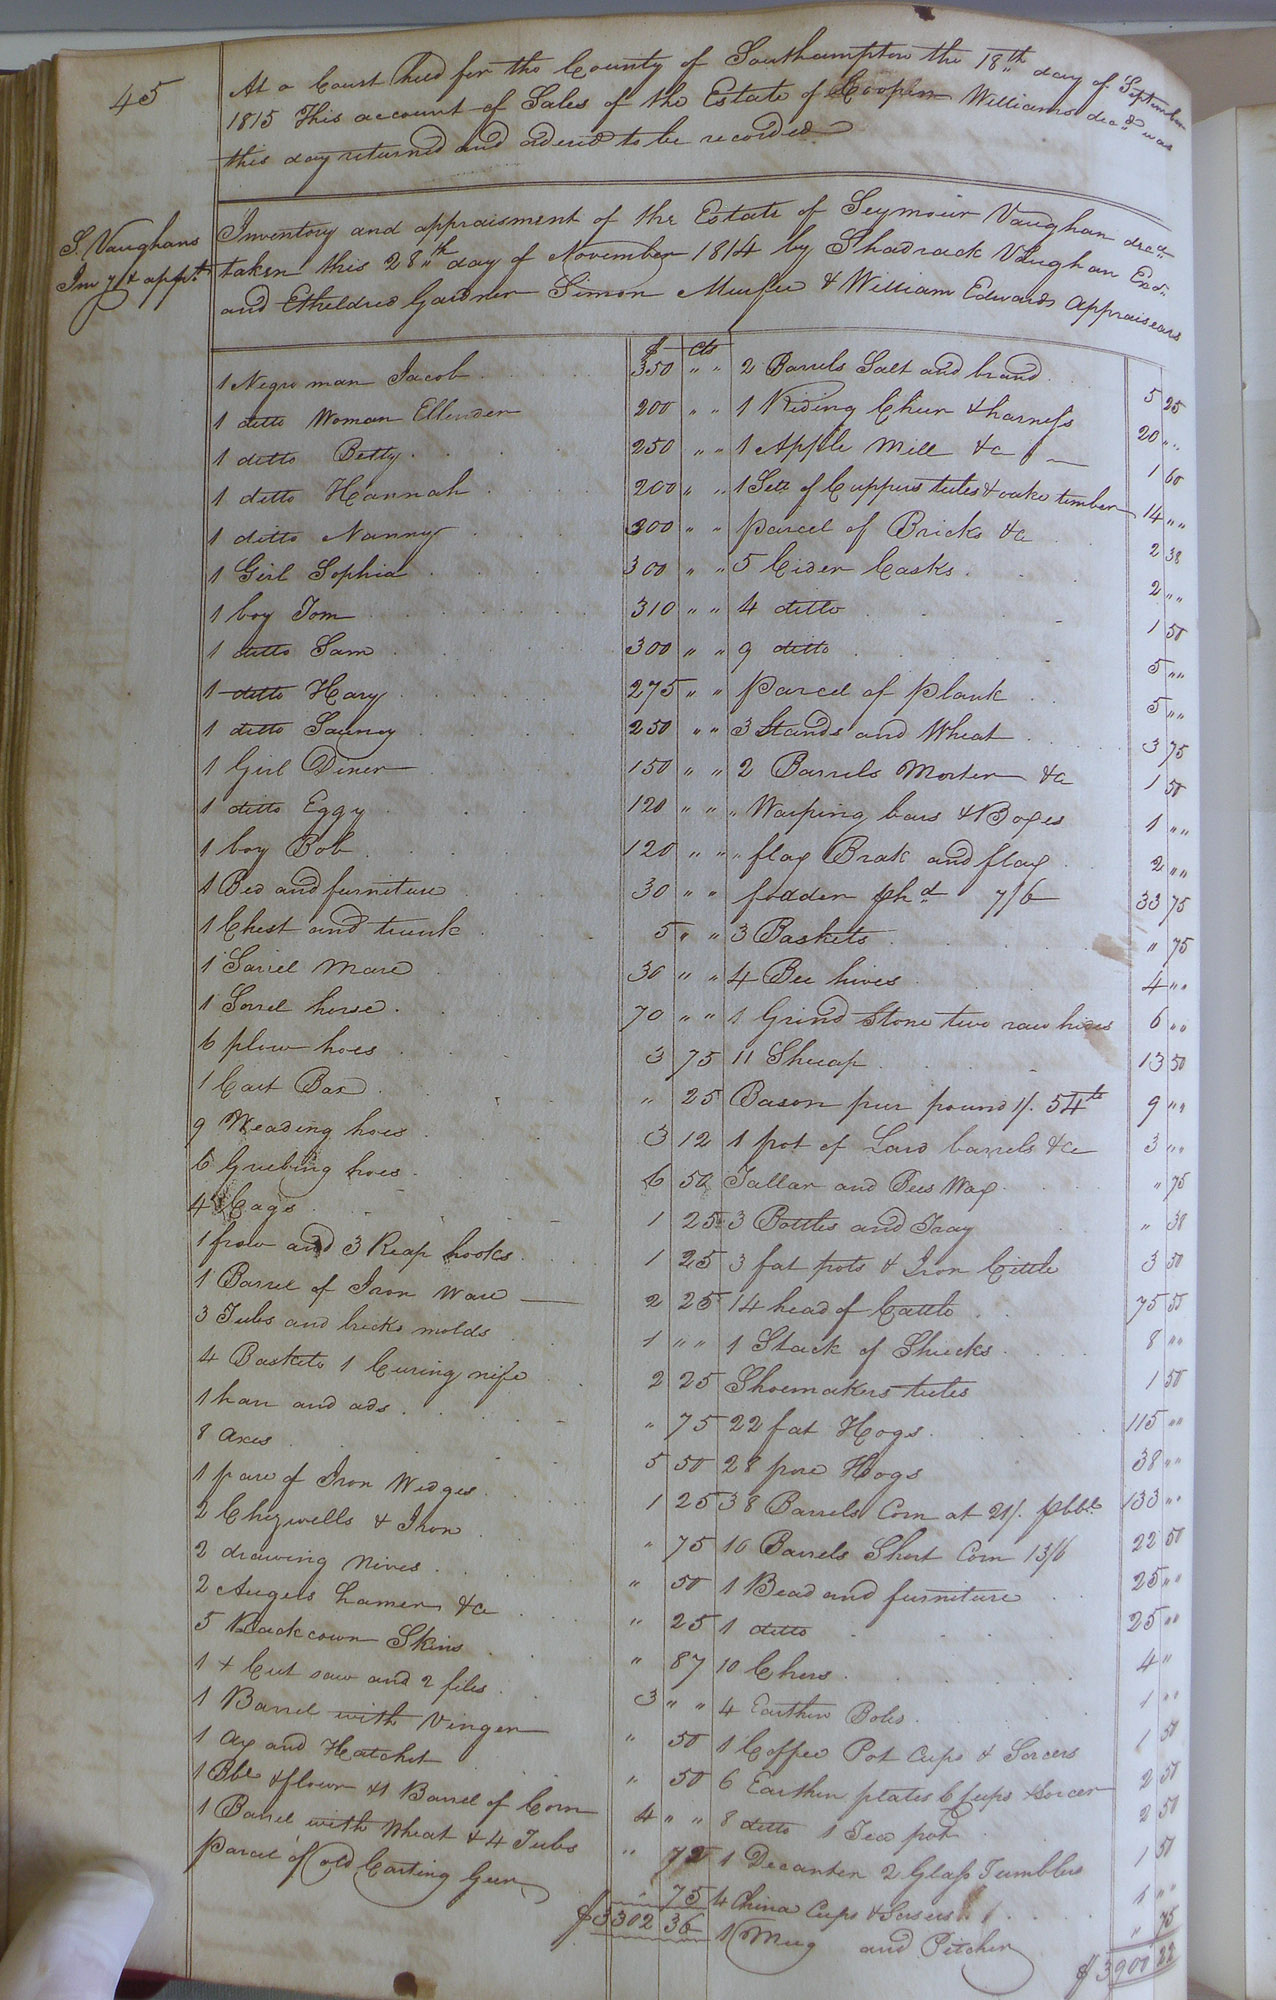 45
At a Court held for the County of Southampton the 18th day of September
1815 This account of Sales of the Estate of Williams decd was
this day returned and ordered to be recorded
S. Vaughans
Invy & appt
Inventory and appraisment of the Estate of Seymour Vaughan decd
taken this 28th day of November 1814 by Shadrack Vaughan Exor
and Etheldred Gardner Simon Murfee & William Edwards appraisears
$ cts
1 Negro man Jacob 350 " "
1 ditto Woman Ellender 200 " "
1 ditto Betty 250 " "
1 ditto Hannah 200 " "
1 ditto Nanny 300 " "
1 Girl Sophia 300 " "
1 boy Tom 310 " "
1 ditto Sam 300 " "
1 ditto Hary 275 " "
1 ditto 250 " "
1 Girl Diner 150 " "
1 ditto Eggy 120 " "
1 boy Bob 120 " "
1 Bed and furniture 30 " "
1 Chest and trunk 5 " "
1 Sarrel Mare 30 " "
1 Sorrel horse 70 " "
6 plow hoes 3 75
1 Cart Box " 25
9 Weading hoes 3 12
6 Grubing hoes 6 50
4 Cags 1 25
1 frow and 3 Reap hooks 1 25
1 Barrel of Iron Ware 2 25
3 Tubs and bricks molds 1 " "
4 Baskets 1 Curing nife 2 25
1 han and ads " 75
8 axes 5 50
1 pare of Iron Wedges 1 25
2 & Iron " 75
2 drawing Nives " 50
2 Augers hamer &c " 25
5 Rackcown Skins " 87
1 + Cut saw and 2 files 3 " "
1 Barrel with Vinger " 50
1 ax and Hatchet " 50
1 Bbl & flour & 1 Barrel of Corn 4 " "
1 Barrel with Wheat & 4 Tubs " 75
Parcel of old Carting Geer " 75
$3302 36
2 Barrels Salt and brand 5 25
1 Riding Cheer & harness 20 " "
1 Apple Mill &c 1 60
1 Sett of Cuppers tules & oake timber 14 " "
parcel of Bricks &c 2 38
5 Cider Casks 2 " "
4 ditto 1 50
9 ditto 5 " "
Parcel of plank 5 " "
3 Stands and Wheat 3 75
2 Barrels Morter &c 1 50
" Warping bars & Boxes 1 " "
" flax Brak and flax 2 " "
fodder phd 7/6 33 75
3 Baskets " 75
4 Bee hives 4 " "
1 Grind Stone two raw hides 6 " "
11 Sheeap 13 50
Bason pur pound 1/. 54 lb 9 " "
1 pot of Lard barrels &c 3 " "
Tallar and Bees Wax " 75
3 Bottles and Tray " 38
3 fat pots & Iron Cittle 3 50
14 head of Cattle 75 50
1 Stack of Shucks 8 " "
Shoemakers tules 1 50
22 fat Hogs 115 " "
28 pore Hogs 38 " "
38 Barrels Corn at 21/. pbbl 133 " "
10 Barrels Short Corn 13/6 22 50
1 Bead and furniture 25 " "
1 ditto 25 " "
10 Chers 4 "
4 Earthen Boles 1 " "
1 Coffee Pot Cups & Sorcers 1 50
6 Earthen plates 6 Cups & Sorcer 2 50
8 ditto 1 Tea pot 2 50
1 Decanter 2 Glass Tumblers 1 50
4 China Cups & Sorsers 1 " "
1 Mug and Pitcher " 75
$ 3900 22